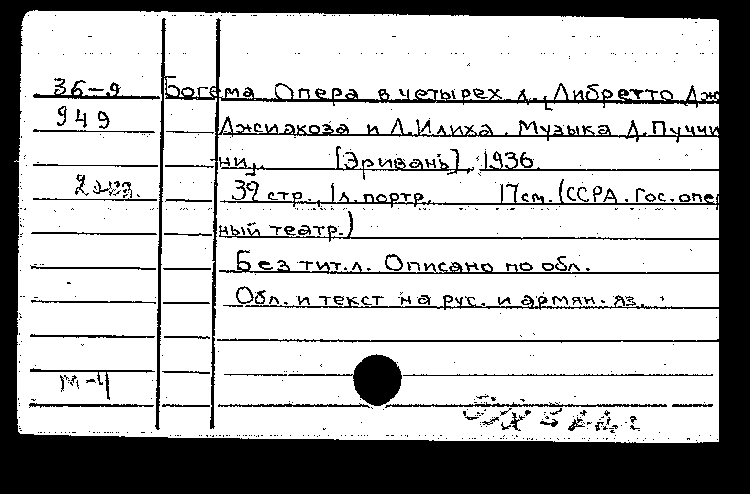 36-9 Богема Опера в четырех д. [Либретто Дж
949 Джиакоза и Л. Илиха. Музыка Д. Пуччи
ни]. [Эривань], 1936.
2 экз. 39 стр., 1 л. портр. 17 см. (ССРА. Гос. опер
ный театр.)
Без тит. л. Описано по обл.
Обл. и текст на рус. и армян. яз.
М-4